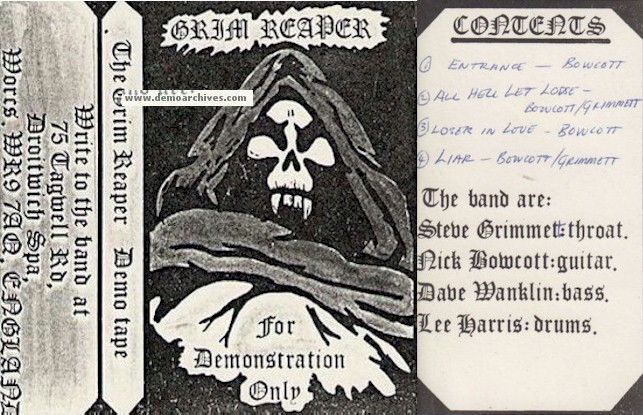 Write to the band at
75 Tagwell Rd,
Droitwich Spa,
Worcs. WR9 7AQ, ENGLAND
The Grim Reaper Demo tape
GRIM REAPER
www.demoarchives.com
For
Demonstration
Only
CONTENTS
① ENTRANCE — BOWCOTT
② ALL HELL LET LOOSE —
BOWCOTT/GRIMMETT
③ LOSER IN LOVE - BOWCOTT
④ LIAR — BOWCOTT/GRIMMETT
The band are:
Steve Grimmet:throat.
Nick Bowcott:guitar.
Dave Wanklin:bass.
Lee Harris:drums.